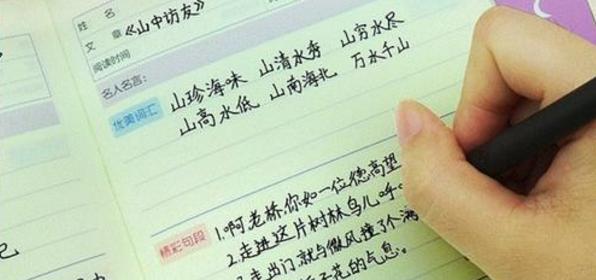 姓名
文章 《山中访友》
阅读时间
名人名言:
优美词汇
山珍海味 山清水秀 山穷水尽
山高水低 山南海北 万水千山
精彩句段
1.啊老桥,你如一位德高望
2.走进这片树林,鸟儿呼
3.走出门,就与微风撞了个满
花的气息。